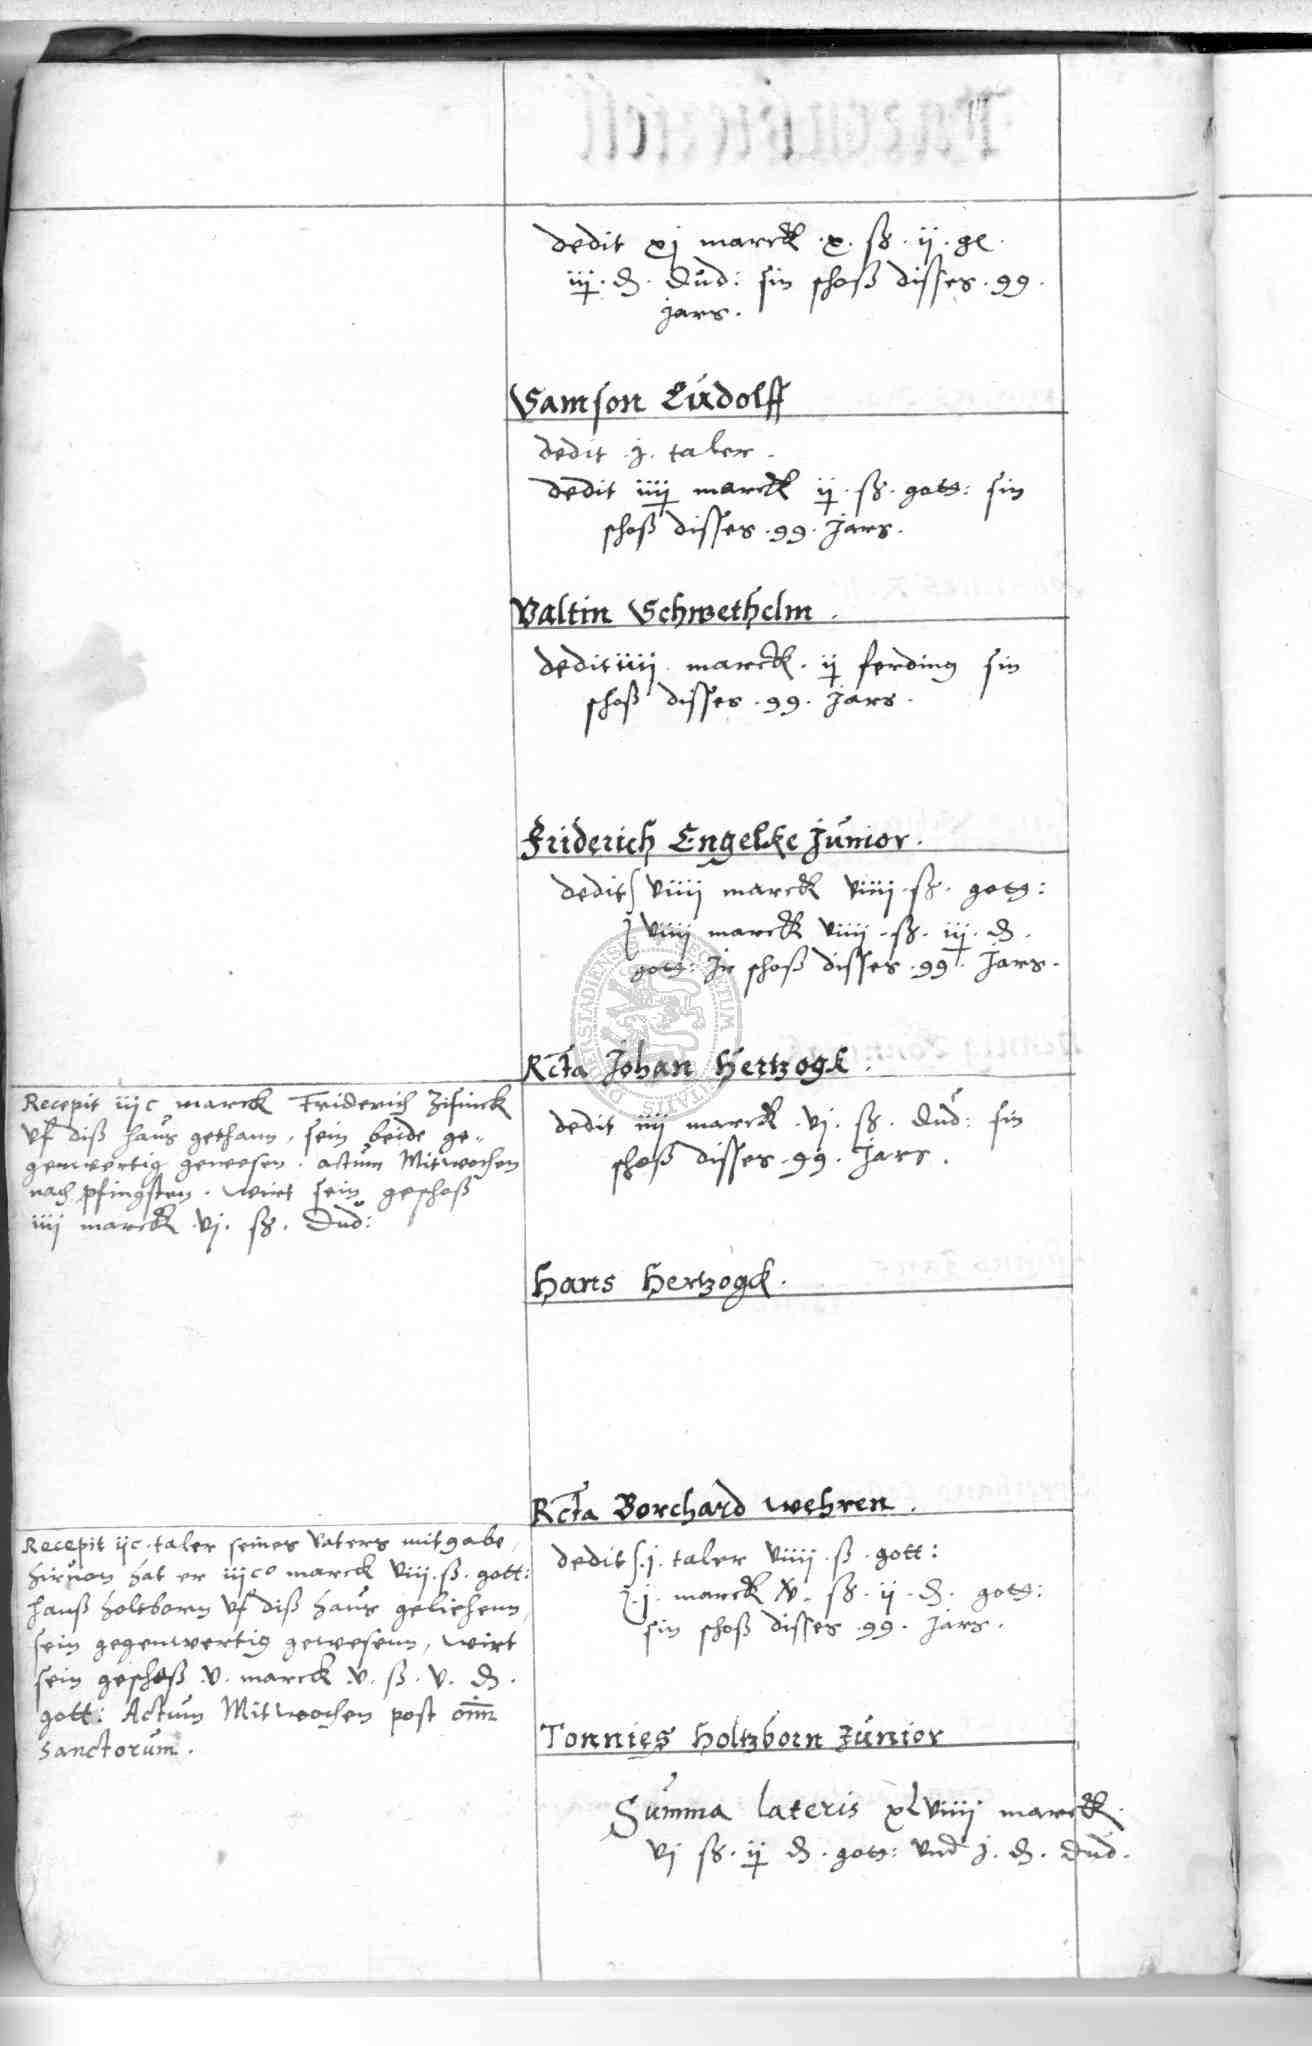 dedit xj marck .x. sß. ij. ge.
iij. d. Dud: sin schoß disses .99.
jars.
Samson Ludolff
dedit .j. taler.
dedit iiij marck ij. sß. gott: sin
schoß disses .99. Jars.
Valtin Schwethelm.
dedit iiij. marck. ij ferding sin
schoß disses .99. Jars.
Friderich Engelke Junior.
dedit viiij marck viiij. sß. gott:
viiij marck viiij. sß. iij. d.
gott: Jr schoß disses .99. Jars.
Rcta Johan Hertzogk.
Recepit iijc marck Friderich Zisinck
vf diß haus gethann, sein beide ge„
genwertig gewesen. actum Mitwochen
nach pfingsten. wirt sein geschoß
iiij marck .vj. sß. Dud:
dedit iiij marck .vj. sß. Dud: sin
schoß disses .99. Jars.
Hans Hertzogk.
Rcta Borchard wehren.
Recepit ijc. taler seines vaters mitgabe,
hiruon hat er iijc marck viij. ß. gott:
hanß holtborn vf diß haus geliehenn,
sein gegenwertig gewesenn, wirt
sein geschoß .v. marck .v. ß. v. d.
gott: Actum Mitwochen post omn
Sanctorum.
dedit .j. taler viiij. ß. gott:
.j. marck xv. sß. ij. d. gott:
sin schoß disses .99. Jars.
Tonnies Holtzborn Junior
Summa lateris xlviiij marck.
vj sß. ij d. gott: vnd j. d. Dud.
DUDERSTADIENSIS SECRETUM CIVITATIS